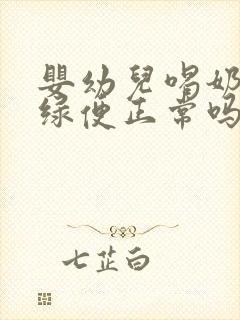 嬰幼兒喝奶
绿便正常吗
七芷白